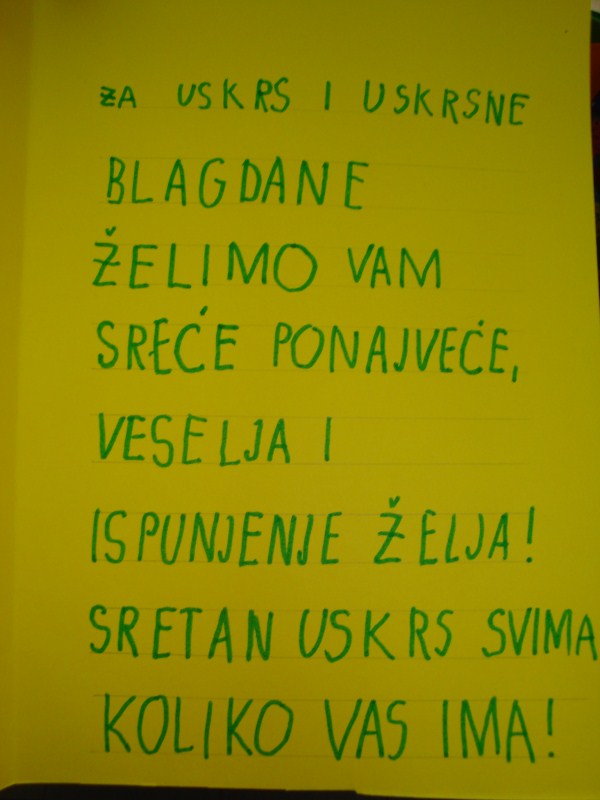 ZA USKRS I USKRSNE
BLAGDANE
ŽELIMO VAM
SREĆE PONAJVEĆE,
VESELJA I
ISPUNJENJE ŽELJA!
SRETAN USKRS SVIMA
KOLIKO VAS IMA!